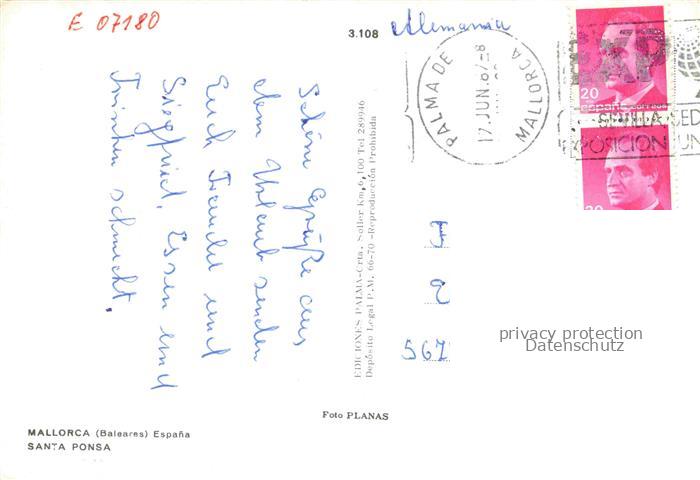 E 07180
3.108
Alemania
PALMA DE MALLORCA
17.JUN.8
EXP
SEVILLA SED
EXPOSICION UN
20
españa CORREOS
20
Schöne Grüße aus
dem Urlaub senden
Euch Traudel und
Siegfried. Essen und
Trinken schmeckt.
EDICIONES PALMA-Crta. Soller Km. 6,100 Tel 289946
Depósito Legal P.M. 66-70 -Reproducción Prohibida
567
privacy protection
Datenschutz
Foto PLANAS
MALLORCA (Baleares) España
SANTA PONSA